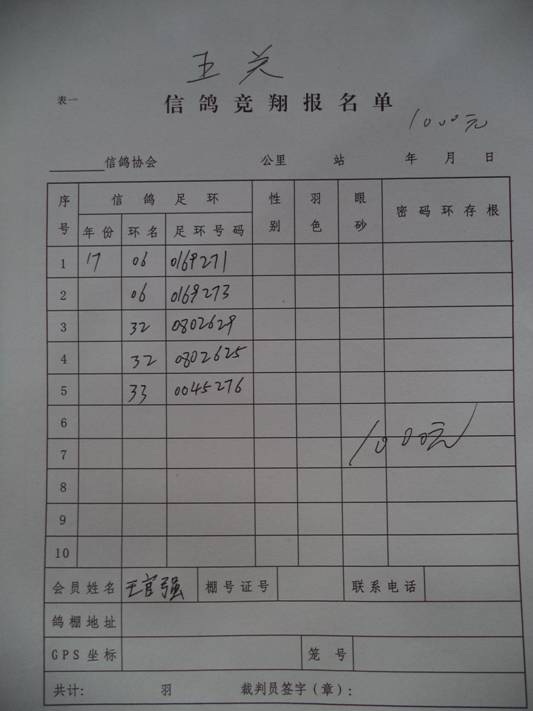 王关
表一
信鸽竞翔报名单
1000元
信鸽协会 公里 站 年 月 日
序号 信鸽足环 性别 羽色 眼砂 密码环存根
年份 环名 足环号码
1 17 06 0169271
2 06 0169273
3 32 0802629
4 32 0802625
5 33 0045276
6
7 1000元
8
9
10
会员姓名 王官强 棚号证号 联系电话
鸽棚地址
GPS坐标 笼号
共计: 羽 裁判员签字(章):